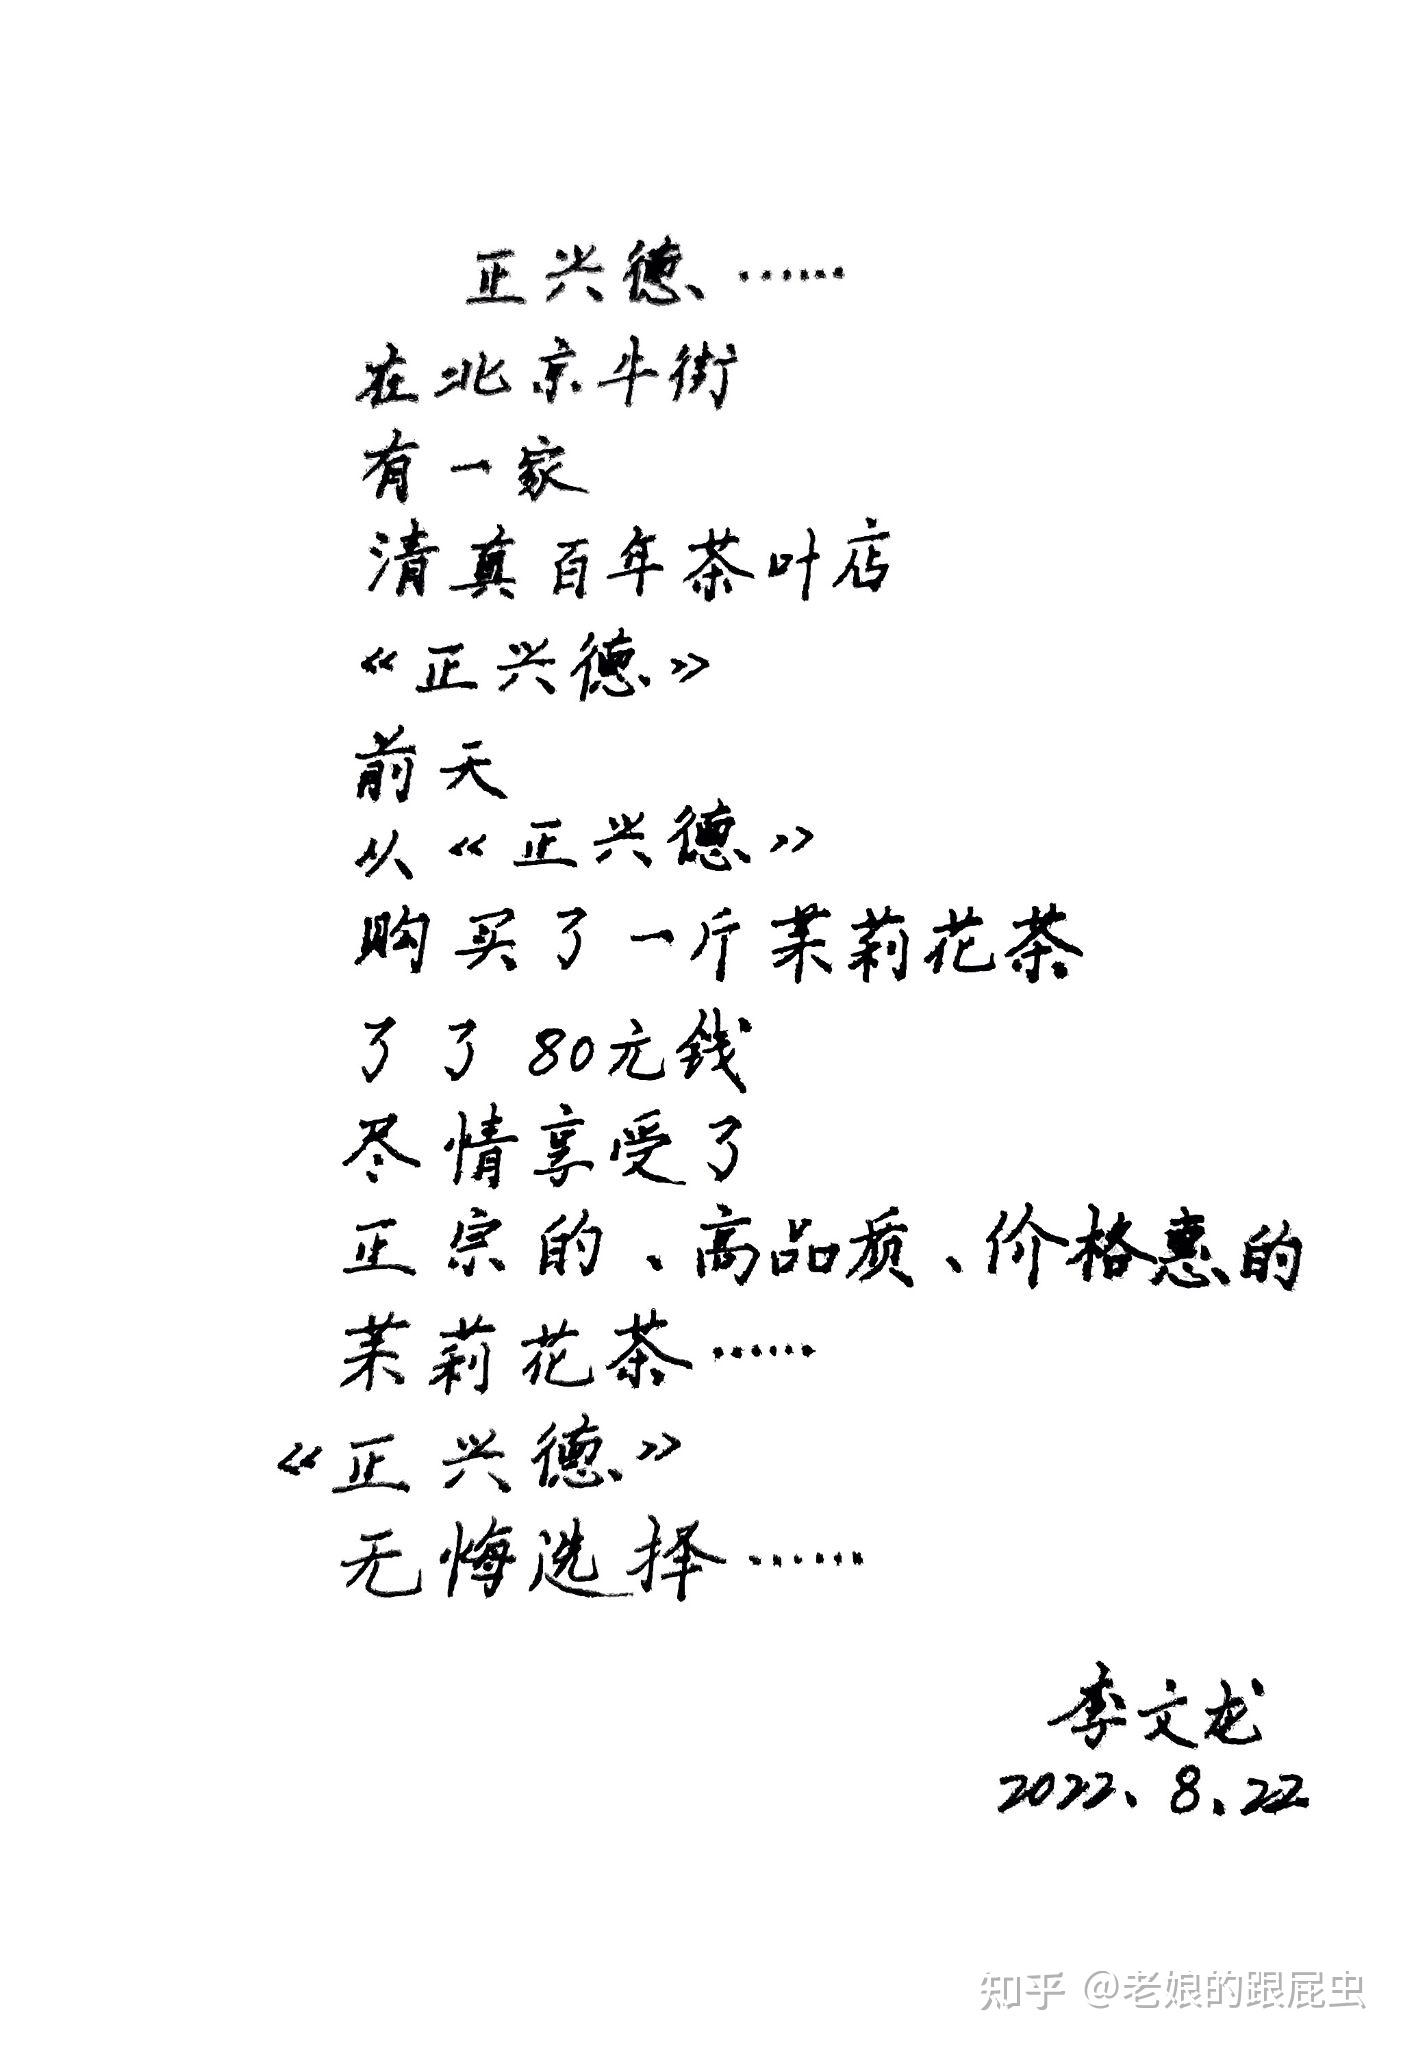 正兴德……
在北京牛街
有一家
清真百年茶叶店
《正兴德》
前天
从《正兴德》
购买了一斤茉莉花茶
了了80元钱
尽情享受了
正宗的、高品质、价格惠的
茉莉花茶……
《正兴德》
无悔选择……
李文龙
2022、8、22
知乎 @老娘的跟屁虫